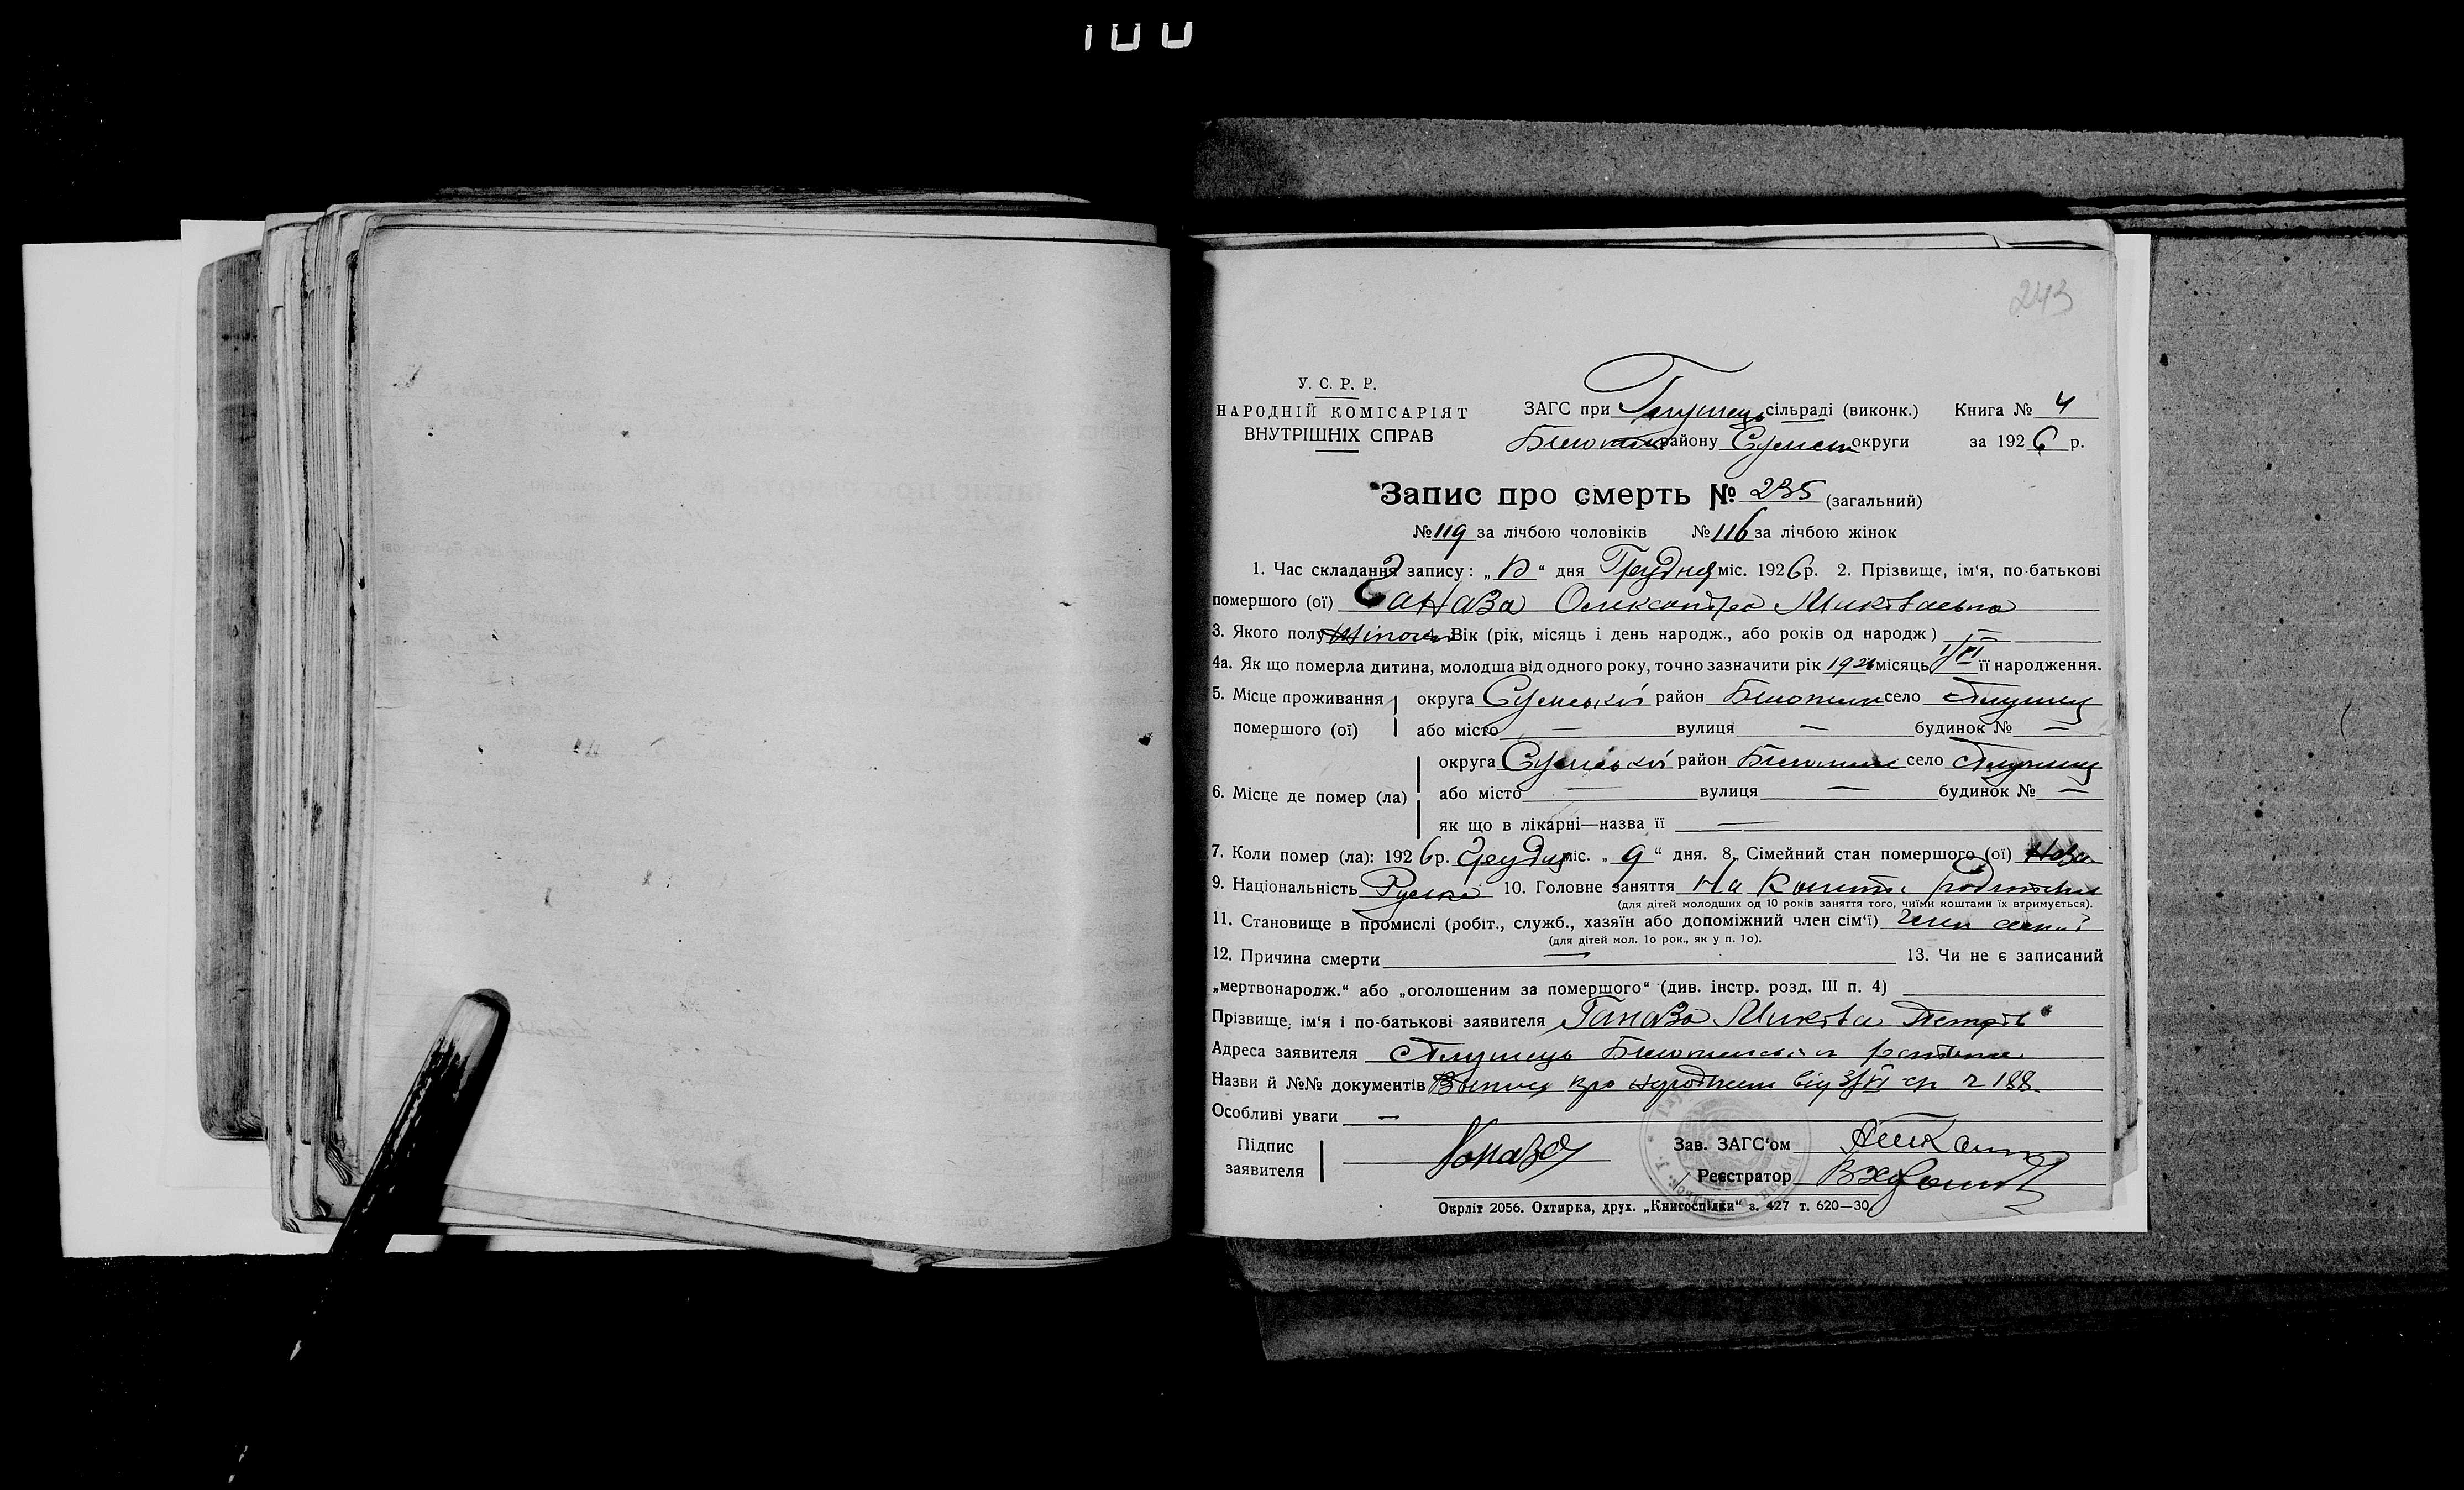 100
243
У. С. Р. Р.
НАРОДНІЙ КОМІСАРІЯТ
ВНУТРІШНІХ СПРАВ
ЗАГС при сільраді (виконк.) Книга № 4
району Сумськ округи за 1926 р.
Запис про смерть № 235 (загальний)
№ 119 за лічбою чоловіків № 116 за лічбою жінок
1. Час складання запису: „ “ дня Грудня міс. 1926 р. 2. Прізвище, ім‘я, по-батькові
помершого (ої) Ганава Олександра Миківаевна
3. Якого полу 4. Вік (рік, місяць і день народж., або років од народж) —
4а. Як що померла дитина, молодша від одного року, точно зазначити рік 1926 місяць 1/VI її народження.
5. Місце проживання округа Сумської район село
помершого (ої) або місто — вулиця — будинок № —
округа Сумської район село
6. Місце де помер (ла) або місто — вулиця — будинок № —
як що в лікарні—назва її —
7. Коли помер (ла): 1926 р. Грудня міс. „ 9 “ дня. 8. Сімейний стан помершого (ої)
9. Національність Руська 10. Головне заняття На кошти
(для дітей молодших од 10 років заняття того, чиїми коштами їх втримується).
11. Становище в промислі (робіт., служб., хазяїн або допоміжний член сім‘ї) член семї
(для дітей мол. 1о рок., як у п. 1о).
12. Причина смерти — 13. Чи не є записаний
„мертвонародж.“ або „оголошеним за помершого“ (див. інстр. розд. III п. 4)
Прізвище, ім‘я і по-батькові заявителя Ганава Миківа Петрів
Адреса заявителя
Назви й №№ документів про від 3/VI 188
Особливі уваги —
Підпис
заявителя
Зав. ЗАГС‘ом
Реєстратор
Окрліт 2056. Охтирка, друх. „Книгоспілки“ з. 427 т. 620—30.